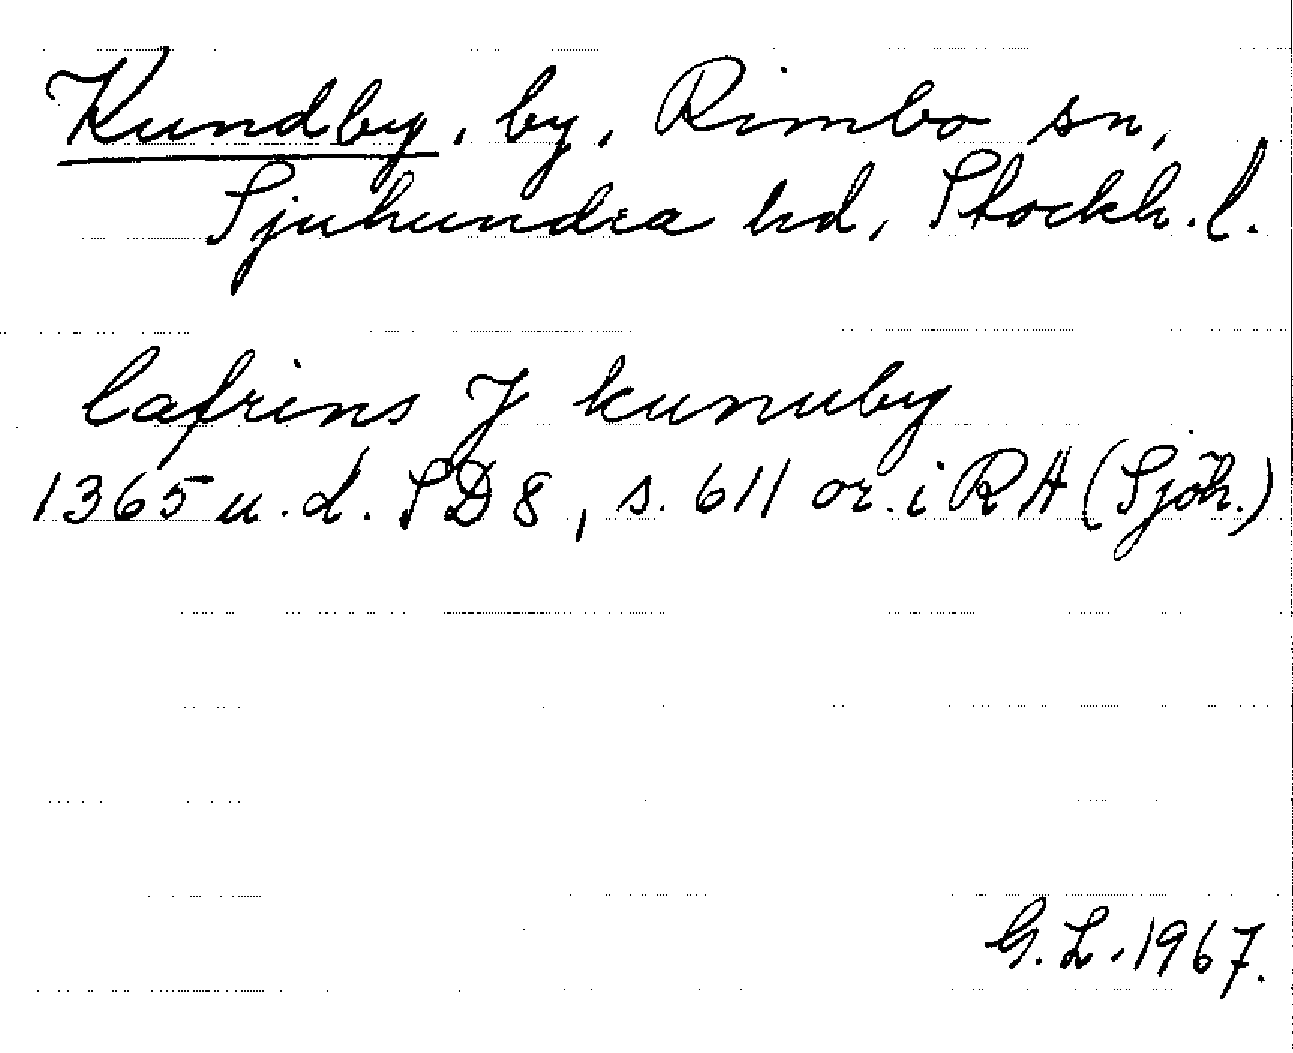 Kundby, by, Rimbo sn,
Sjuhundra hd, Stockh. l.
lafrins J kunuby
1365 u. d. SD 8, s. 611 or. i RA (Sjöh.)
G. L. 1967.